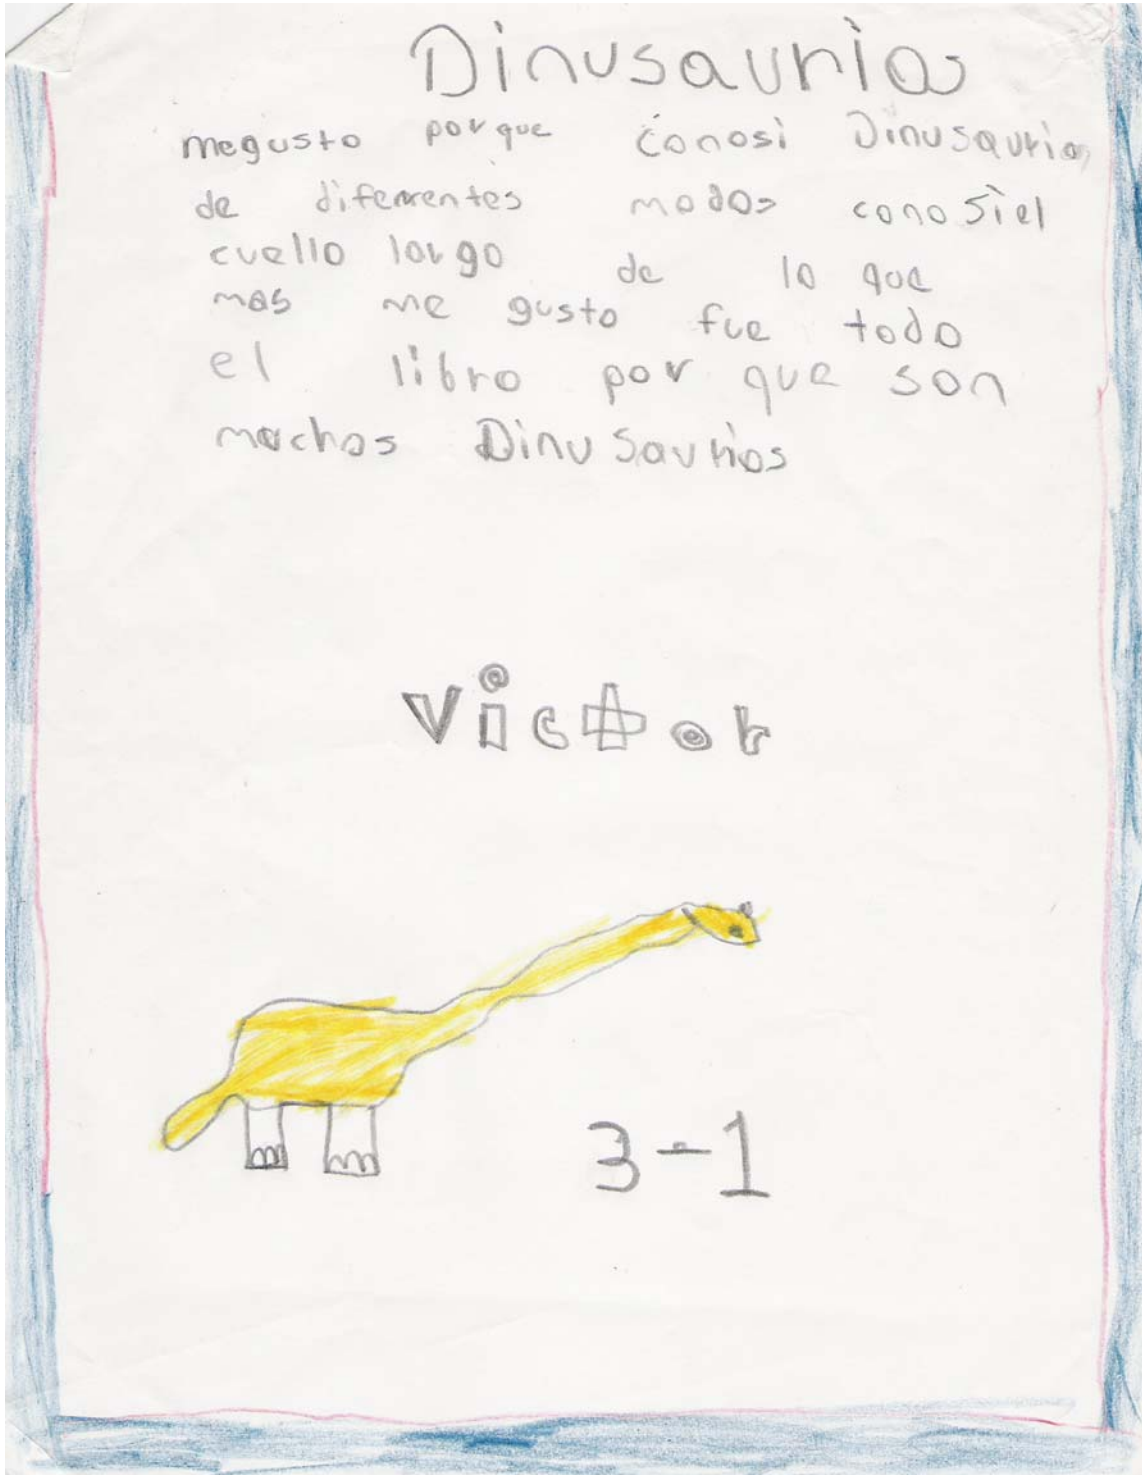 Dinusaurios
megusto porque conosi Dinusaurios
de diferentes modos conosiel
cuello largo de lo que
mas me gusto fue todo
el libro por que son
muchos Dinusaurios
Victor
3-1